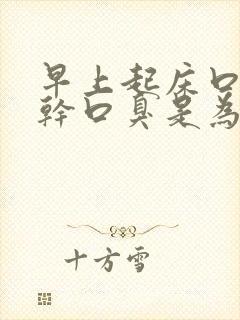 早上起床口
幹口臭是為
十方雪